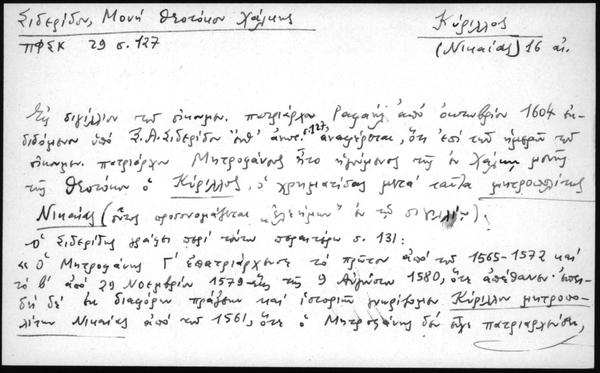 Σιδερίδου, Μονή Θεοτόκου Χάλκης
ΠΦΣΚ 29 σ. 127
Κύριλλος
(Νικαίας) 16 αι.
Εἰς σιγίλλιον τοῦ οἰκουμεν. πατριάρχου Ραφαήλ ἀπό ὀκτωβρίου 1604 ἐκ-
διδόμενον ὑπό Ξ.Α. Σιδερίδου ἔνθ' ἀνωτ. σ. 127 ἀναφέρεται, ὅτι ἐπί τῶν ἡμερῶν τοῦ
οἰκουμεν. πατριάρχου Μητροφάνους ἦτο ἡγούμενος τῆς ἐν Χάλκῃ μονῆς
τῆς Θεοτόκου ὁ Κύριλλος, ὁ χρηματίσας μετά ταῦτα μητροπολίτης
Νικαίας (οὗτος προσονομάζεται "ἐλεήμων" ἐν τῷ σιγιλλίῳ).
Ὁ Σιδερίδης γράφει περί τούτου περαιτέρω σ. 131:
« Ὁ Μητροφάνης Γ' ἐπατριάρχευσε τό πρῶτον ἀπό τοῦ 1565-1572 καί
τό β' ἀπό 29 Νοεμβρίου 1579 ἕως τῆς 9 Αὐγούστου 1580, ὅτε ἀπέθανεν. Ἐπει-
δή δέ ἐκ διαφόρων πράξεων καί ἱστοριῶν γνωρίζομεν Κύριλλον μητροπο-
λίτην Νικαίας ἀπό τοῦ 1561, ὅτε ὁ Μητροφάνης δέν εἶχε πατριαρχεύσει,